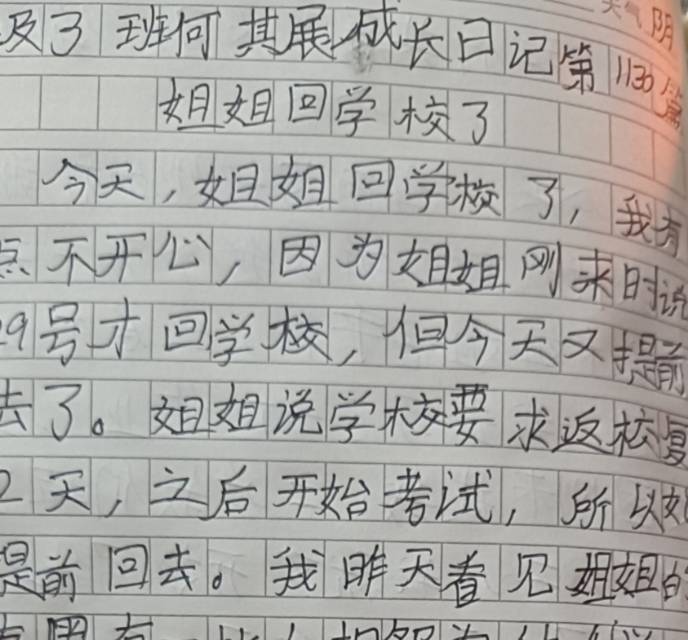 天气 阴
及3班何其展成长日记第1130篇
姐姐回学校了
今天,姐姐回学校了,我有
点不开心,因为姐姐刚来时说
29号才回学校,但今天又提前
去了。姐姐说学校要求返校复
2天,之后开始考试,所以姐
提前回去。我昨天看见姐姐的